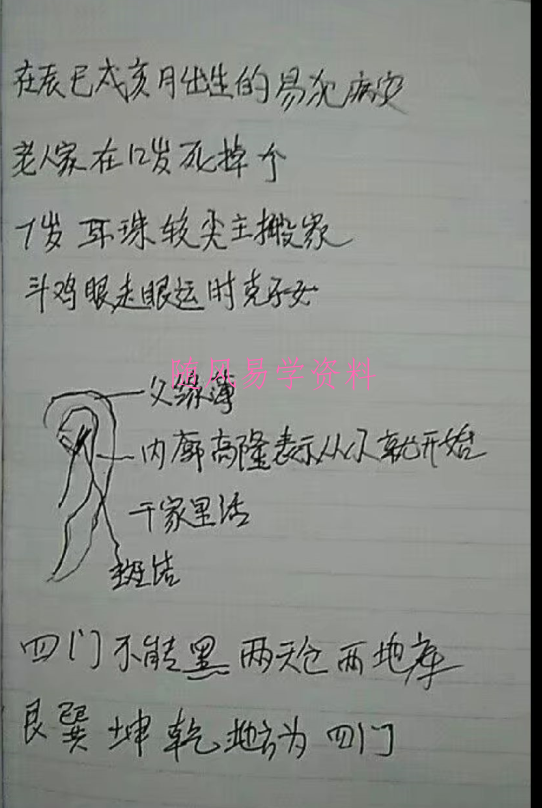 在辰巳戌亥月出生的易犯病灾
老人家在12岁死掉个
7岁 耳珠较尖主搬家
斗鸡眼走眼运时克子女
随风易学资料
父缘薄
内廓高隆表示从小就开始
干家里活
斑结
四门不能黑 两天仓 两地库
艮巽坤乾地方为四门